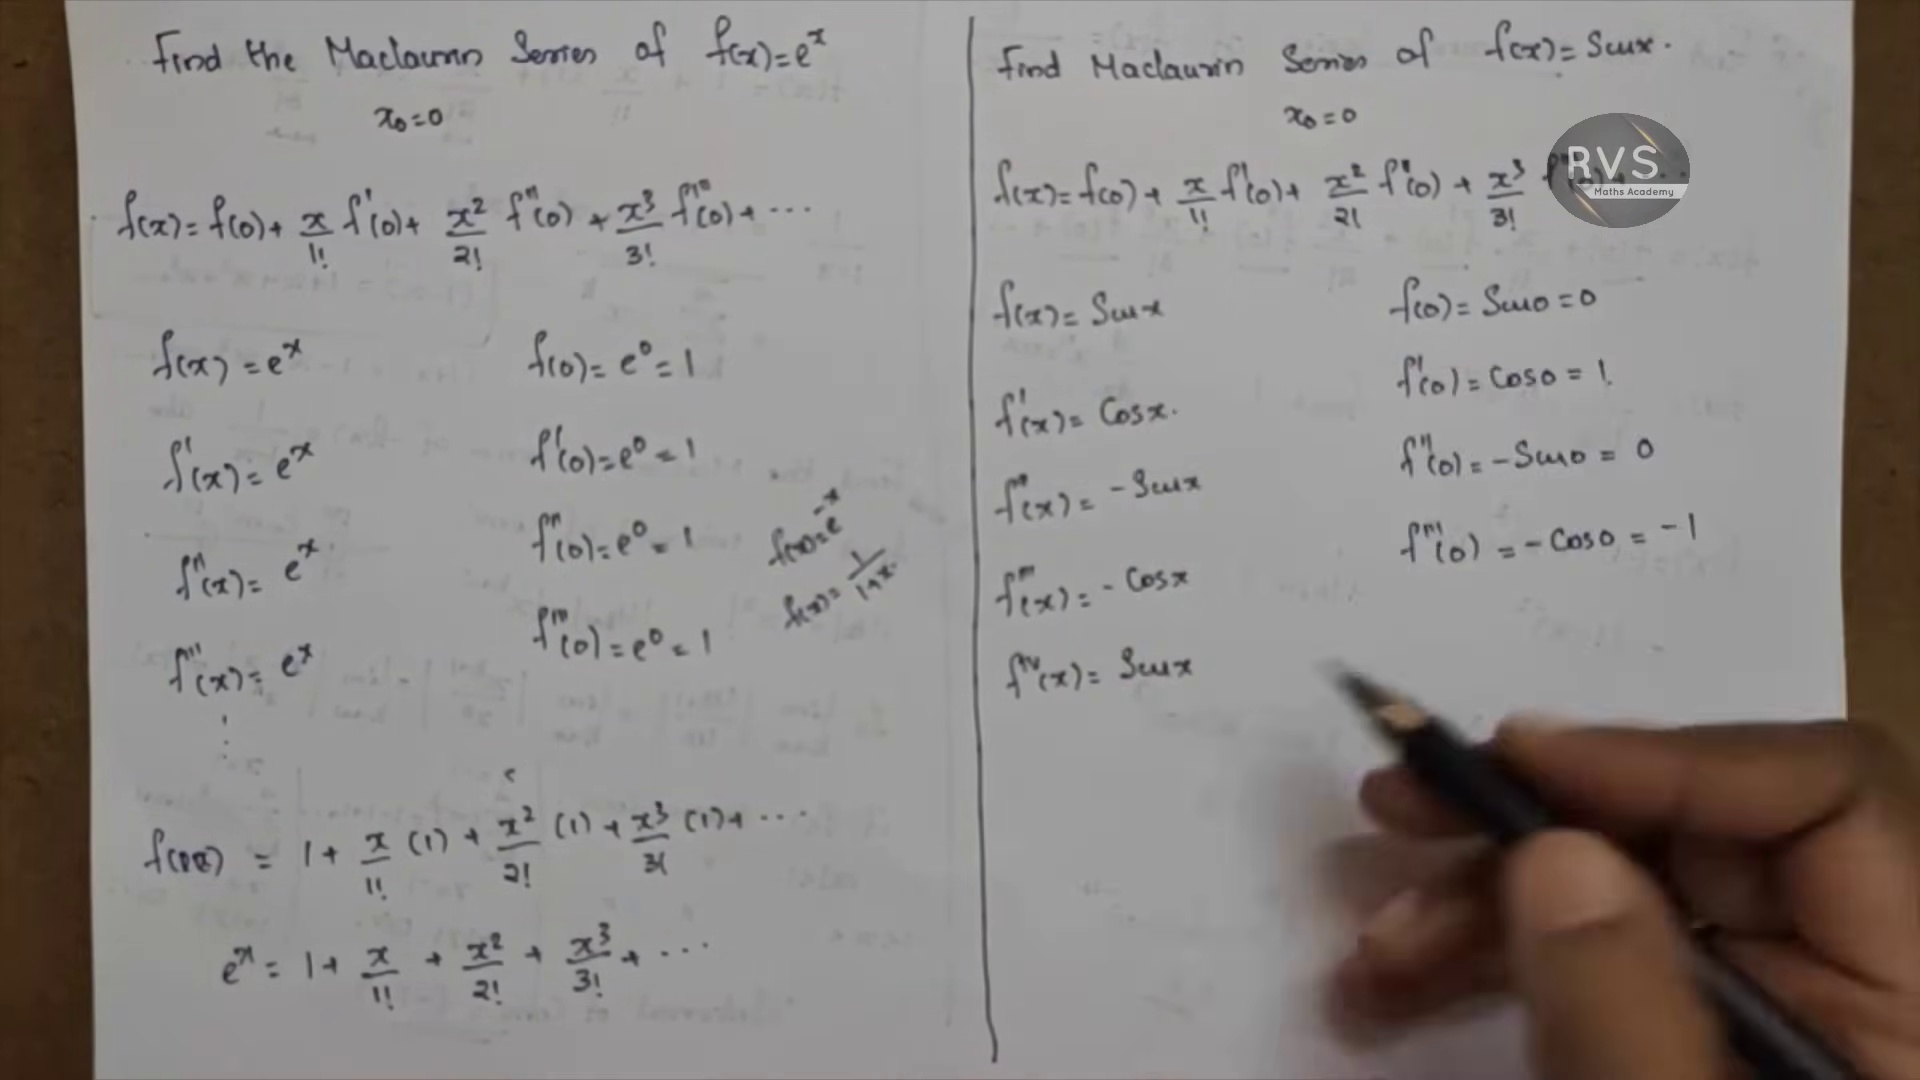 Find the Maclaurin Series of f(x)=e^x
x₀=0
f(x)=f(0)+ x/1! f'(0)+ x²/2! f''(0) + x³/3! f'''(0)+ ...
f(x) = e^x
f(0)= e⁰= 1
f'(x)= e^x
f'(0)=e⁰=1
f''(x)= e^x
f''(0)=e⁰=1
f'''(x)= e^x
f'''(0)=e⁰=1
f(x)=e^-x
f(x)= 1/1+x
⋮
= 1+ x/1! (1) + x²/2! (1) + x³/3! (1)+ ...
e^x = 1+ x/1! + x²/2! + x³/3! + ...
Find Maclaurin Series of f(x)= Sinx.
x₀=0
RVS
Maths Academy
f(x)=f(0)+ x/1! f'(0)+ x²/2! f''(0) + x³/3!
f(x)= Sinx
f(0)= Sin0=0
f'(x)= Cosx.
f'(0)= Cos0 = 1.
f''(x)= -Sinx
f''(0)= -Sin0 = 0
f'''(x)= -Cosx
f'''(0) = -Cos0 = -1
f^IV(x)= Sinx